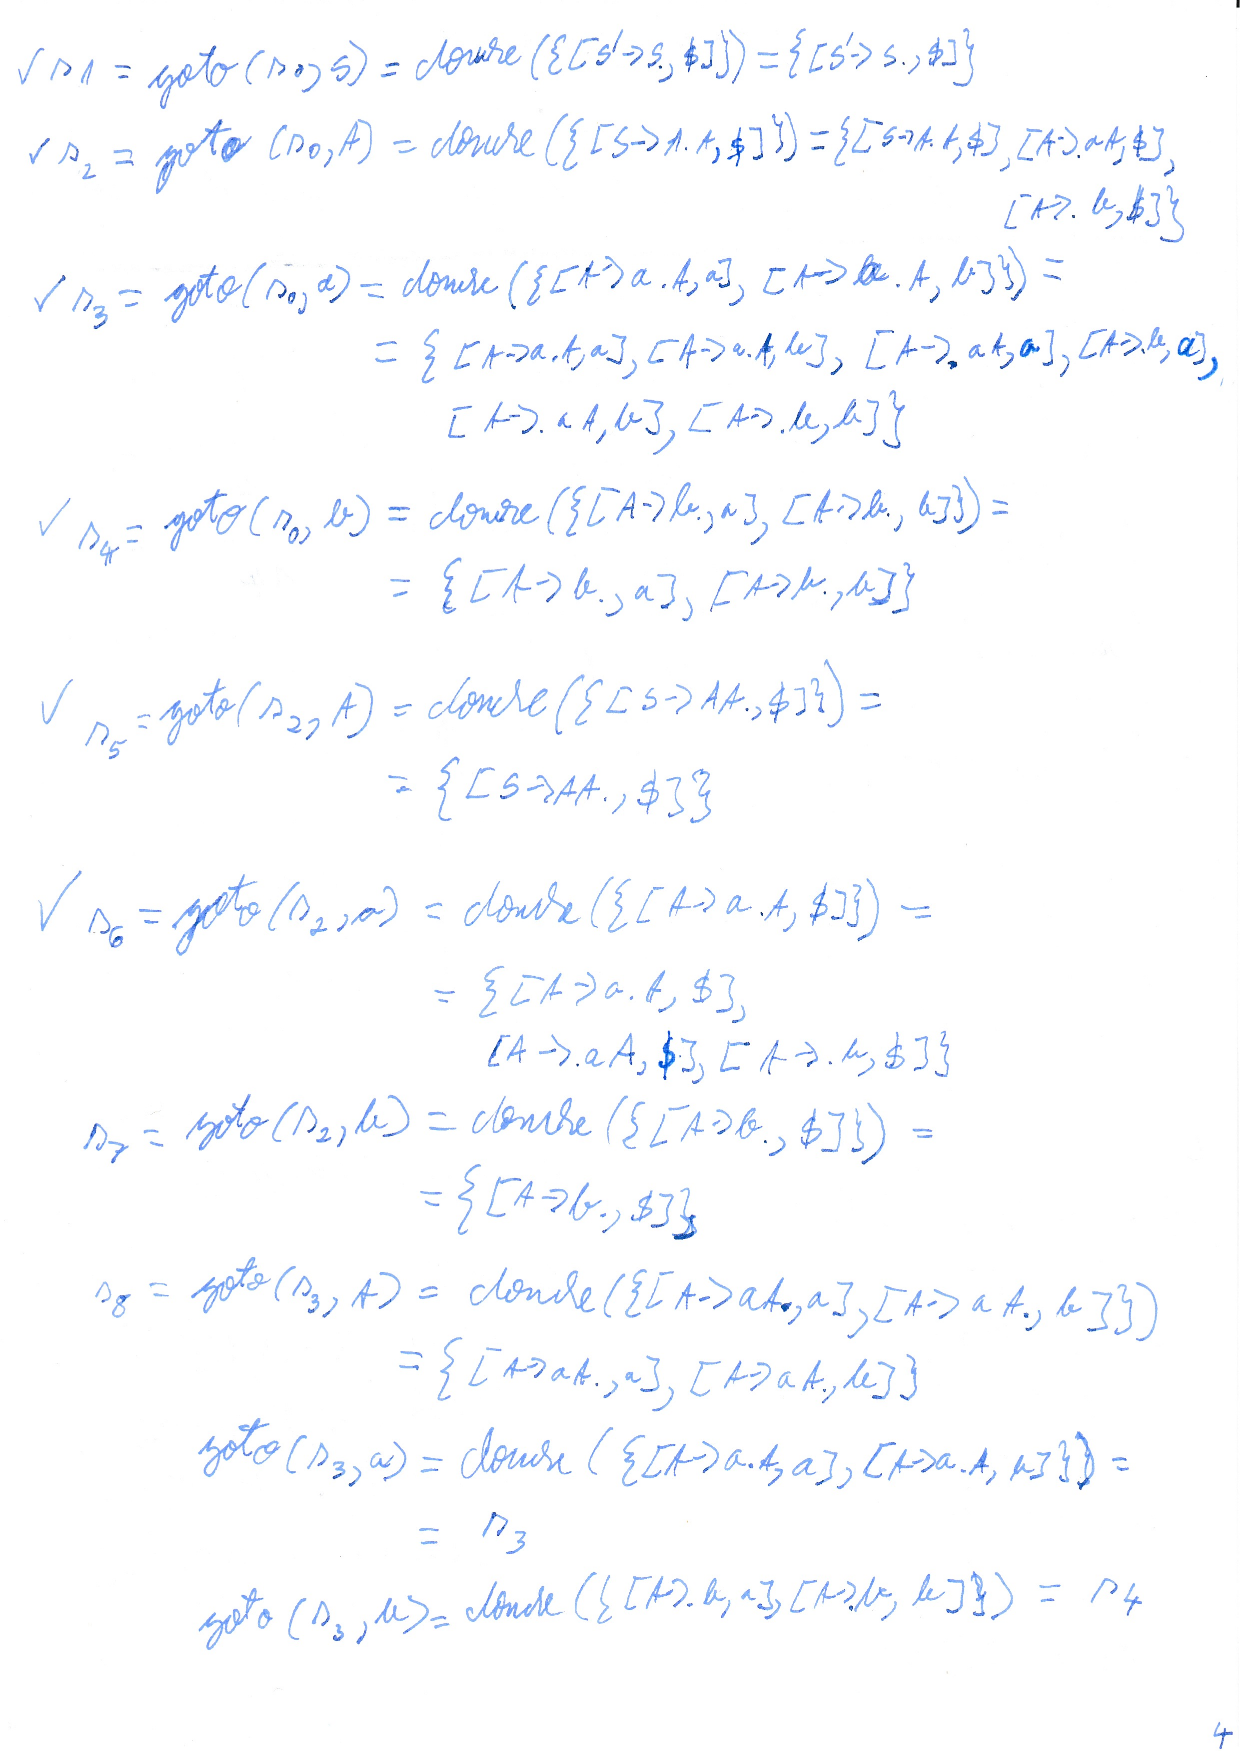 ✓ s1 = goto(s0, S) = closure({[S'->S., $]}) = {[S'->S., $]}
✓ s2 = goto(s0, A) = closure({[S->A.A, $]}) = {[S->A.A, $], [A->.aA, $],
[A->.b, $]}
✓ s3 = goto(s0, a) = closure({[A->a.A, a], [A->a.A, b]}) =
= {[A->a.A, a], [A->a.A, b], [A->.aA, a], [A->.b, a],
[A->.aA, b], [A->.b, b]}
✓ s4 = goto(s0, b) = closure({[A->b., a], [A->b., b]}) =
= {[A->b., a], [A->b., b]}
✓ s5 = goto(s2, A) = closure({[S->AA., $]}) =
= {[S->AA., $]}
✓ s6 = goto(s2, a) = closure({[A->a.A, $]}) =
= {[A->a.A, $],
[A->.aA, $], [A->.b, $]}
s7 = goto(s2, b) = closure({[A->b., $]}) =
= {[A->b., $]}
s8 = goto(s3, A) = closure({[A->aA., a], [A->aA., b]})
= {[A->aA., a], [A->aA., b]}
goto(s3, a) = closure({[A->a.A, a], [A->a.A, b]}) =
= s3
goto(s3, b) = closure({[A->.b, a], [A->.b, b]}) = s4
4